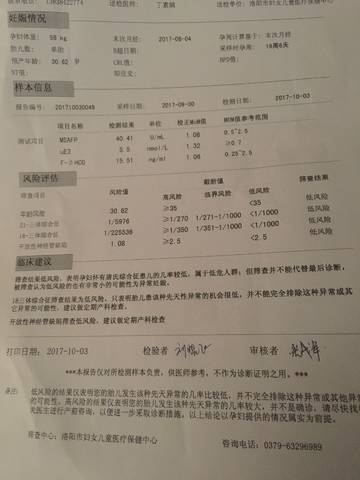 妊娠情况
孕妇体重： 58 kg 末次月经： 2017-06-04 孕周计算基于：末次月经
胎儿数： 单胎 B超日期： 采样时孕周：16周6天
预产年龄： 30.62 岁 CRL值： BPD值：
NT值： 即往史：
样本信息
报告编号： 20171003004 采样日期： 2017-09-30 检测日期： 2017-10-03
测试项目 项目名称 检测结果 单位 校正MoM值 MOM值参考范围
MSAFP 40.41 U/mL 1.08 0.5~2.5
uE3 5.5 nmol/L 1.32 ≥0.7
F-β-HCG 15.51 ng/ml 1.06 0.25~2.5
风险评估
筛查项目 风险值 截断值 筛查结果
高风险 临界风险 低风险
年龄风险 30.62 ≥35 <35 低风险
21-三体综合征 1/5976 ≥1/270 1/271-1/1000 <1/1000 低风险
18-三体综合征 1/225536 ≥1/350 1/351-1/1000 <1/1000 低风险
开放性神经管缺陷 1.08 ≥2.5 <2.5 低风险
临床建议
筛查结果低风险，表明孕妇怀有唐氏综合征患儿的几率较低，属于低危人群；但筛查并不能代替最后诊断，
被筛查认为低风险的也有非常小的可能性为异常妊娠。
18三体综合征筛查结果为低风险，只表明胎儿患该种先天性异常的机会很低，并不能完全排除这种异常或其
它异常的可能性。建议做定期产科检查。
开放性神经管缺陷筛查低风险，建议做定期产科检查
打印日期： 2017-10-03 检验者 审核者
***本报告仅对所检测样本负责，供医师参考，不作为诊断证明之用。***
备注： 低风险的结果仅表明您的胎儿发生该种先天异常的几率比较低，并不能完全排除这种异常或其他异常
的可能性。高风险的结果仅表明您的胎儿发生该种先天异常的几率较大，并不是确诊，请尽快找
医生进行产前咨询，以便进一步采取诊断措施，以上结论以孕妇提供的情况属实为前提。
筛查中心：洛阳市妇女儿童医疗保健中心 咨询电话：0379-63296989